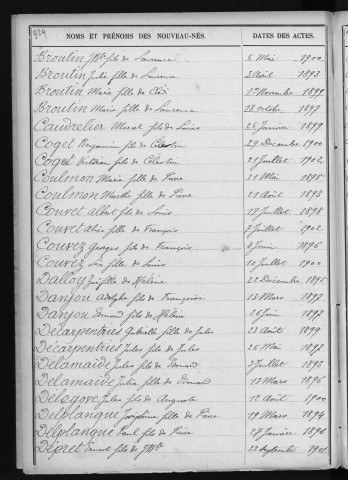 924
NOMS ET PRÉNOMS DES NOUVEAU-NÉS. DATES DES ACTES.
Broutin fils de Laurence 5 Mai 1900
Broutin Julie fille de Laurence 3 Avril 1893
Broutin Marie fille de 1er Novembre 1899
Broutin Marie fille de Laurence 28 octobre 1897
Caudrelier Marcel fils de Louis 25 Janvier 1899
Coget Benjamin fils de Célestin 29 Décembre 1900
Coget Victorien fils de Célestin 21 Juillet 1902
Coulmon Marie fille de Pierre 21 Mai 1895
Coulmon Marthe fille de Pierre 21 Août 1893
Couvet Albert fils de Louis 17 Juillet 1898
Couvet Alice fille de François 7 Juillet 1902
Couvez Georges fils de François 8 Juin 1896
Couvez Léa fille de Louis 10 Juillet 1900
Dalloy fille de Hélène 22 Décembre 1895
Danjou Adolphe fils de Françoise 13 Mars 1897
Danjou Fernand fils de Hélène 26 Juin 1897
Décarpentries Gabrielle fille de Jules 23 Août 1899
Décarpentries Jules fils de Jules 26 Mai 1897
Delamaide Jules fils de Fernand 3 Juillet 1893
Delamaide Julia fille de Fernand 12 Mars 1896
Delegove Jules fils de Auguste 12 Août 1900
Delplanque Joséphine fille de Pierre 19 Mars 1894
Delplanque Paul fils de Pierre 27 Janvier 1896
Dépret Ernest fils de 22 Septembre 1901